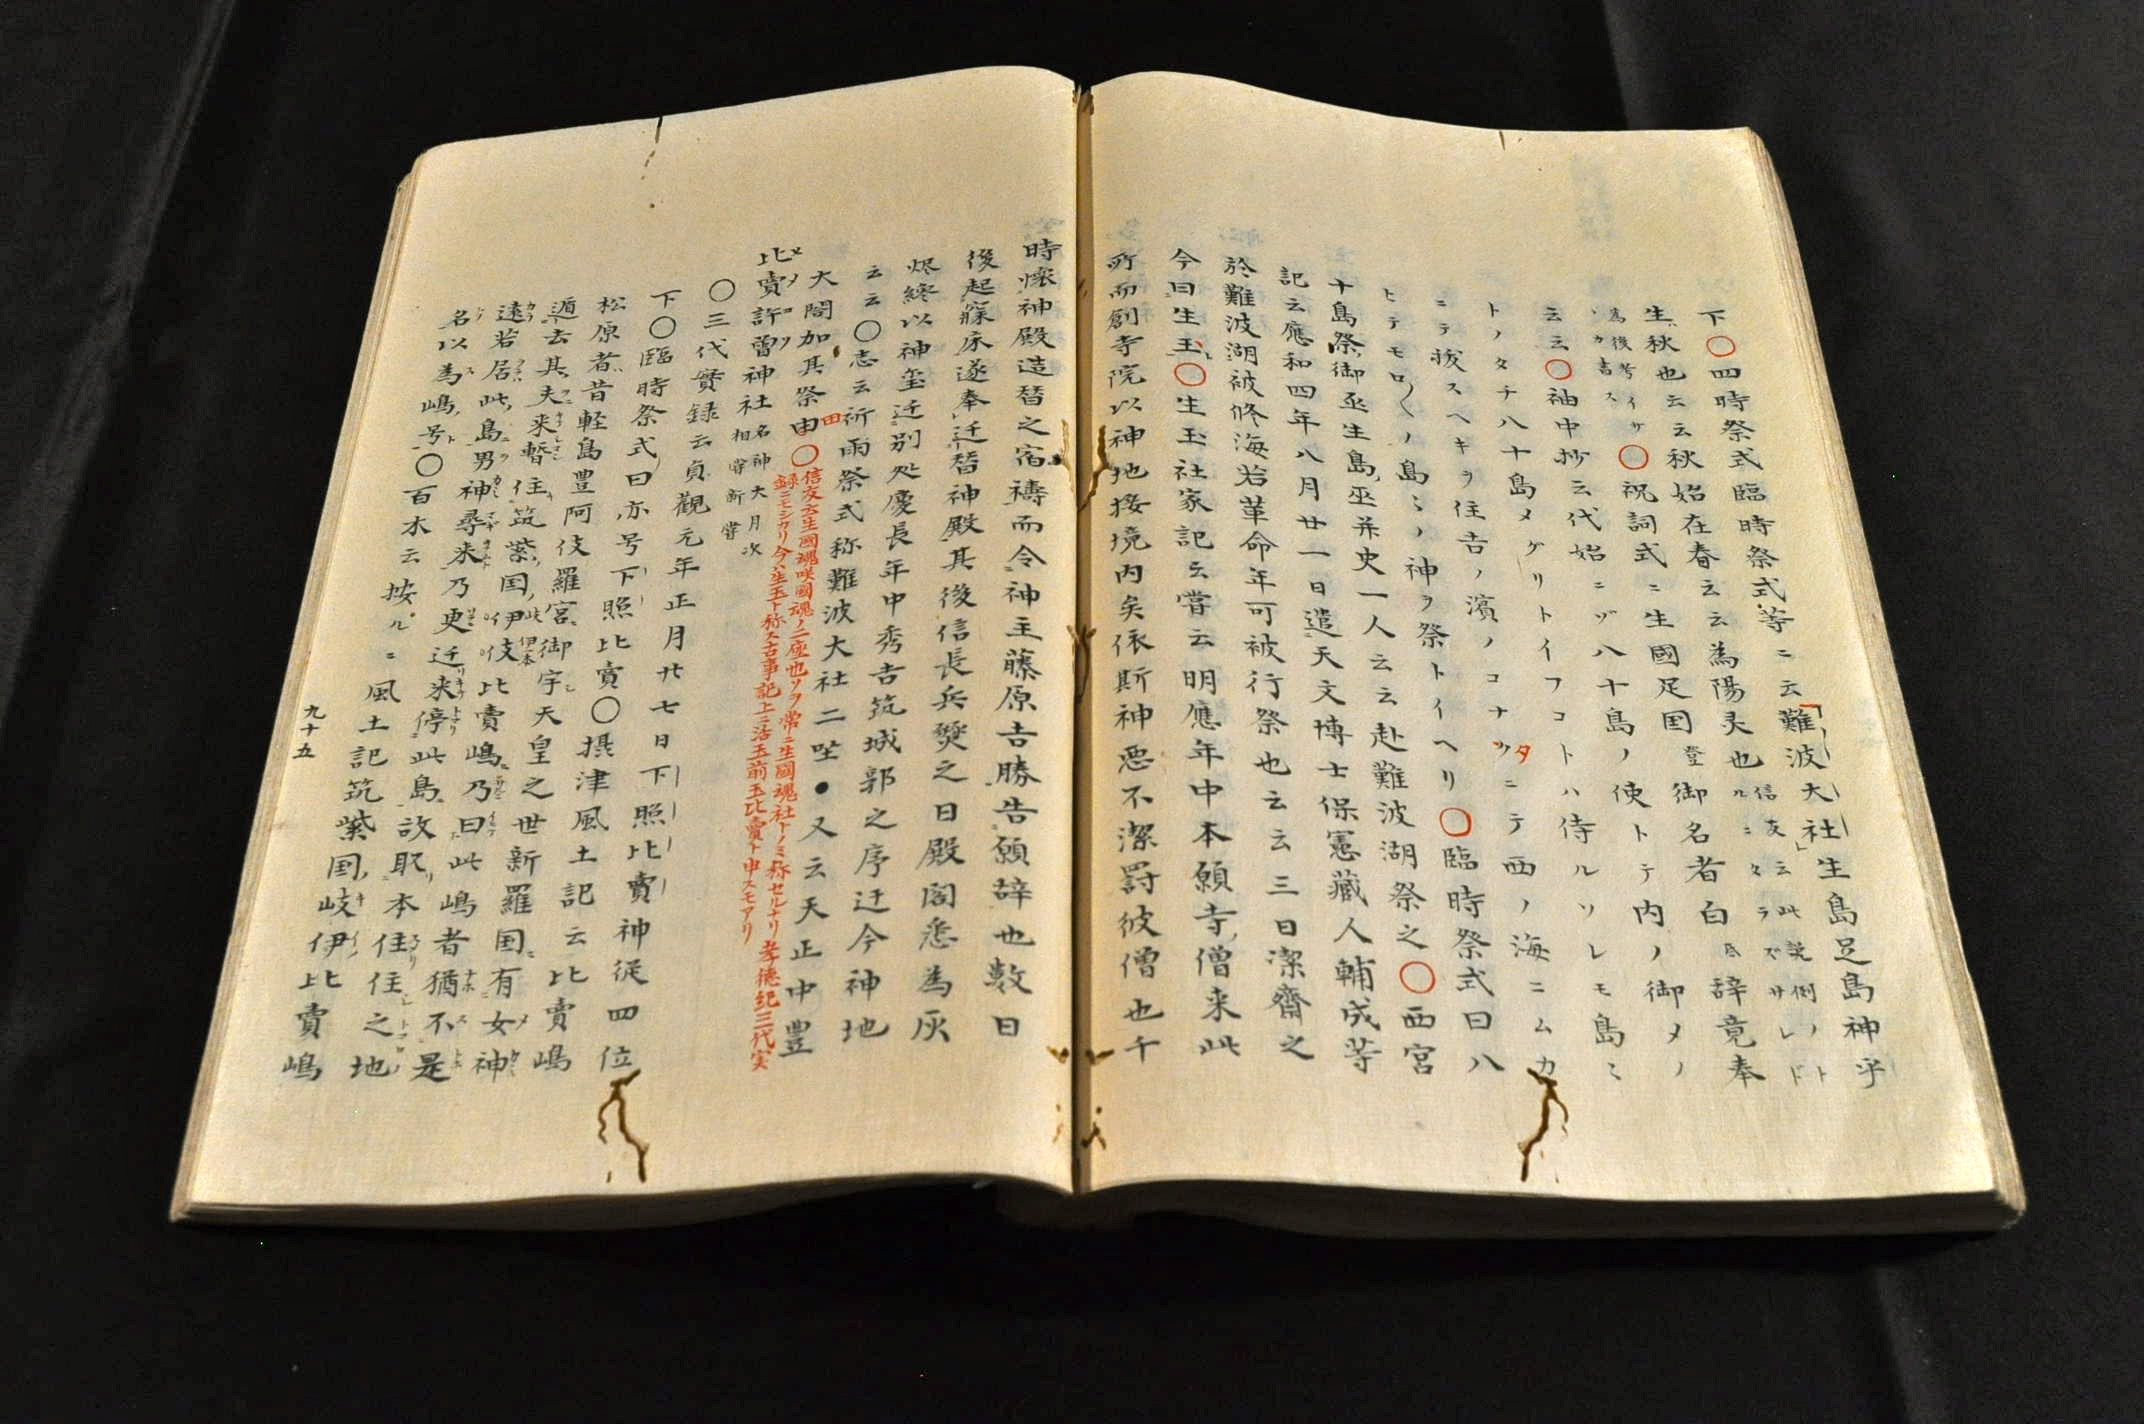 下〇四時祭式臨時祭式等ニ云「難波大社」生島足島神乎
生秋也云云秋始在春云云為陽灵也信友云此説倒ノト
ルニタラズサレド
為後考イサ
ヽカ書ス〇祝詞式ニ生國足国登御名者白氐辞竟奉
云云〇袖中抄云代始ニヅ八十島ノ使トテ内ノ御メノ
トノタチ八十島メグリトイフコトハ侍ルソレモ島〻
ニテ祓スヘキヲ住吉ノ濱ノコナタニテ西ノ海ニムカ
ヒテモロ〳〵ノ島〻ノ神ヲ祭トイヘリ〇臨時祭式曰八
十島祭御巫生島巫并史一人云云赴難波湖祭之〇西宮
記云應和四年八月廿一日遣天文博士保憲藏人輔成等
於難波湖被修海若革命年可被行祭也云云三日潔齋之
今曰生玉〇生玉社家記云嘗云明應年中本願寺僧来此
所而創寺院以神地接境内矣依斯神悪不潔罸彼僧也千
時懐神殿造替之宿禱而令神主藤原吉勝告願辞也数日
後起寐床遂奉迁替神殿其後信長兵燹之日殿閣悉為灰
烬終以神玺迁别处慶長年中秀吉筑城郭之序迁今神地
云云〇志云祈雨祭式称難波大社二坐●又云天正中豊
大閤加其祭田〇信友云生國魂咲國魂ノ二座也ソヲ常ニ生國魂社トノミ称セルナリ孝德紀三代実
録ニモシカリ今ハ生玉ト称ス古事記上ニ活玉前玉比賣ト申スモアリ
比賣許曽神社名神大月次
相嘗新嘗
〇三代實録云貞觀元年正月廿七日下照比賣神従四位
下〇臨時祭式曰亦号下照比賣〇摂津風土記云比賣嶋
松原者昔軽島豊阿伎羅宮御宇天皇之世新羅国有女神
遁去其夫来暫住筑紫国伊伎比賣嶋乃曰此嶋者猶不是
遠若居此島男神尋来乃更迁来停此島故取本住之地
名以為嶋号〇百木云按ルニ風土記筑紫国岐伊比賣嶋
九十五